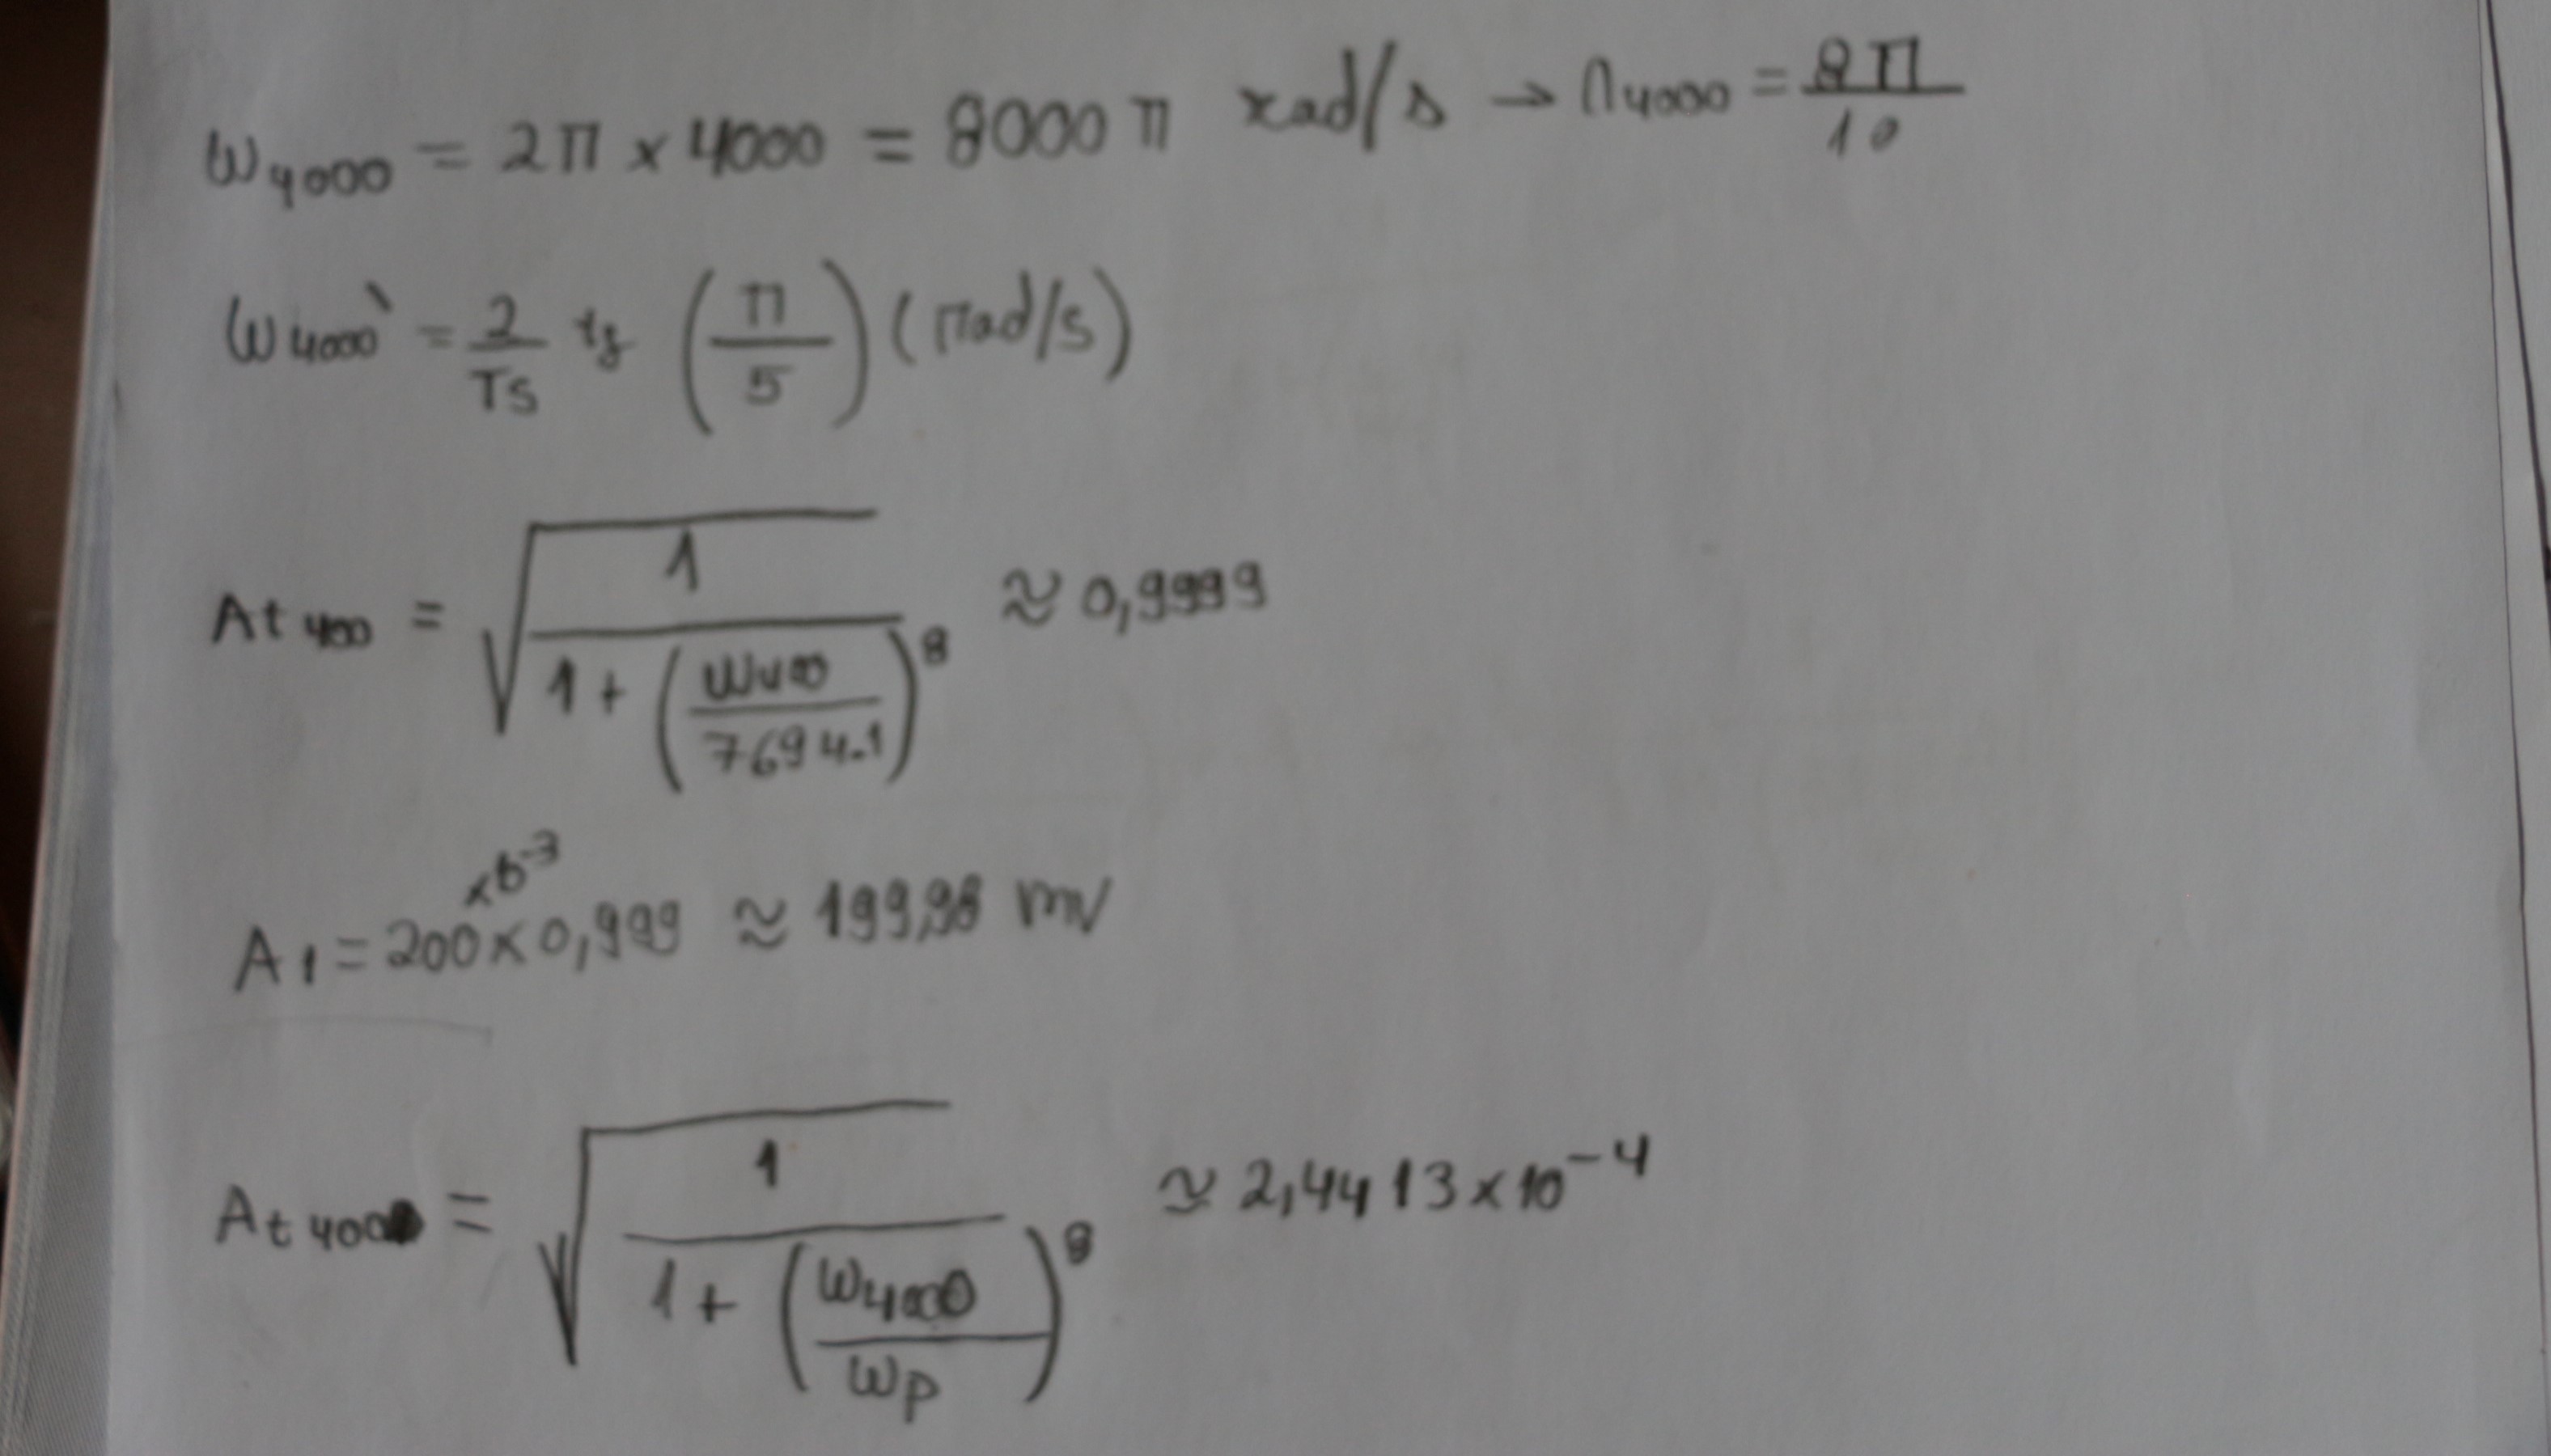 ω₄₀₀₀ = 2π × 4000 = 8000 π rad/s → Ω₄₀₀₀ = 8π/10
ω₄₀₀₀` = 2/Ts tg (π/5) (rad/s)
At₄₀₀ = √(1/(1 + (ω₄₀₀/7694.1)⁸)) ≈ 0,9999
×10⁻³
A₁ = 200 × 0,999 ≈ 199,98 mV
At₄₀₀₀ = √(1/(1 + (ω₄₀₀₀/ωp)⁸)) ≈ 2,4413 × 10⁻⁴